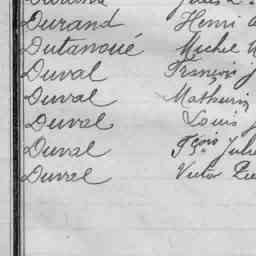 Durand Henri
Dutanoué Michel
Duval François J
Duval Mathurin
Duval Louis
Duval Fçois Julie
Duval Victor